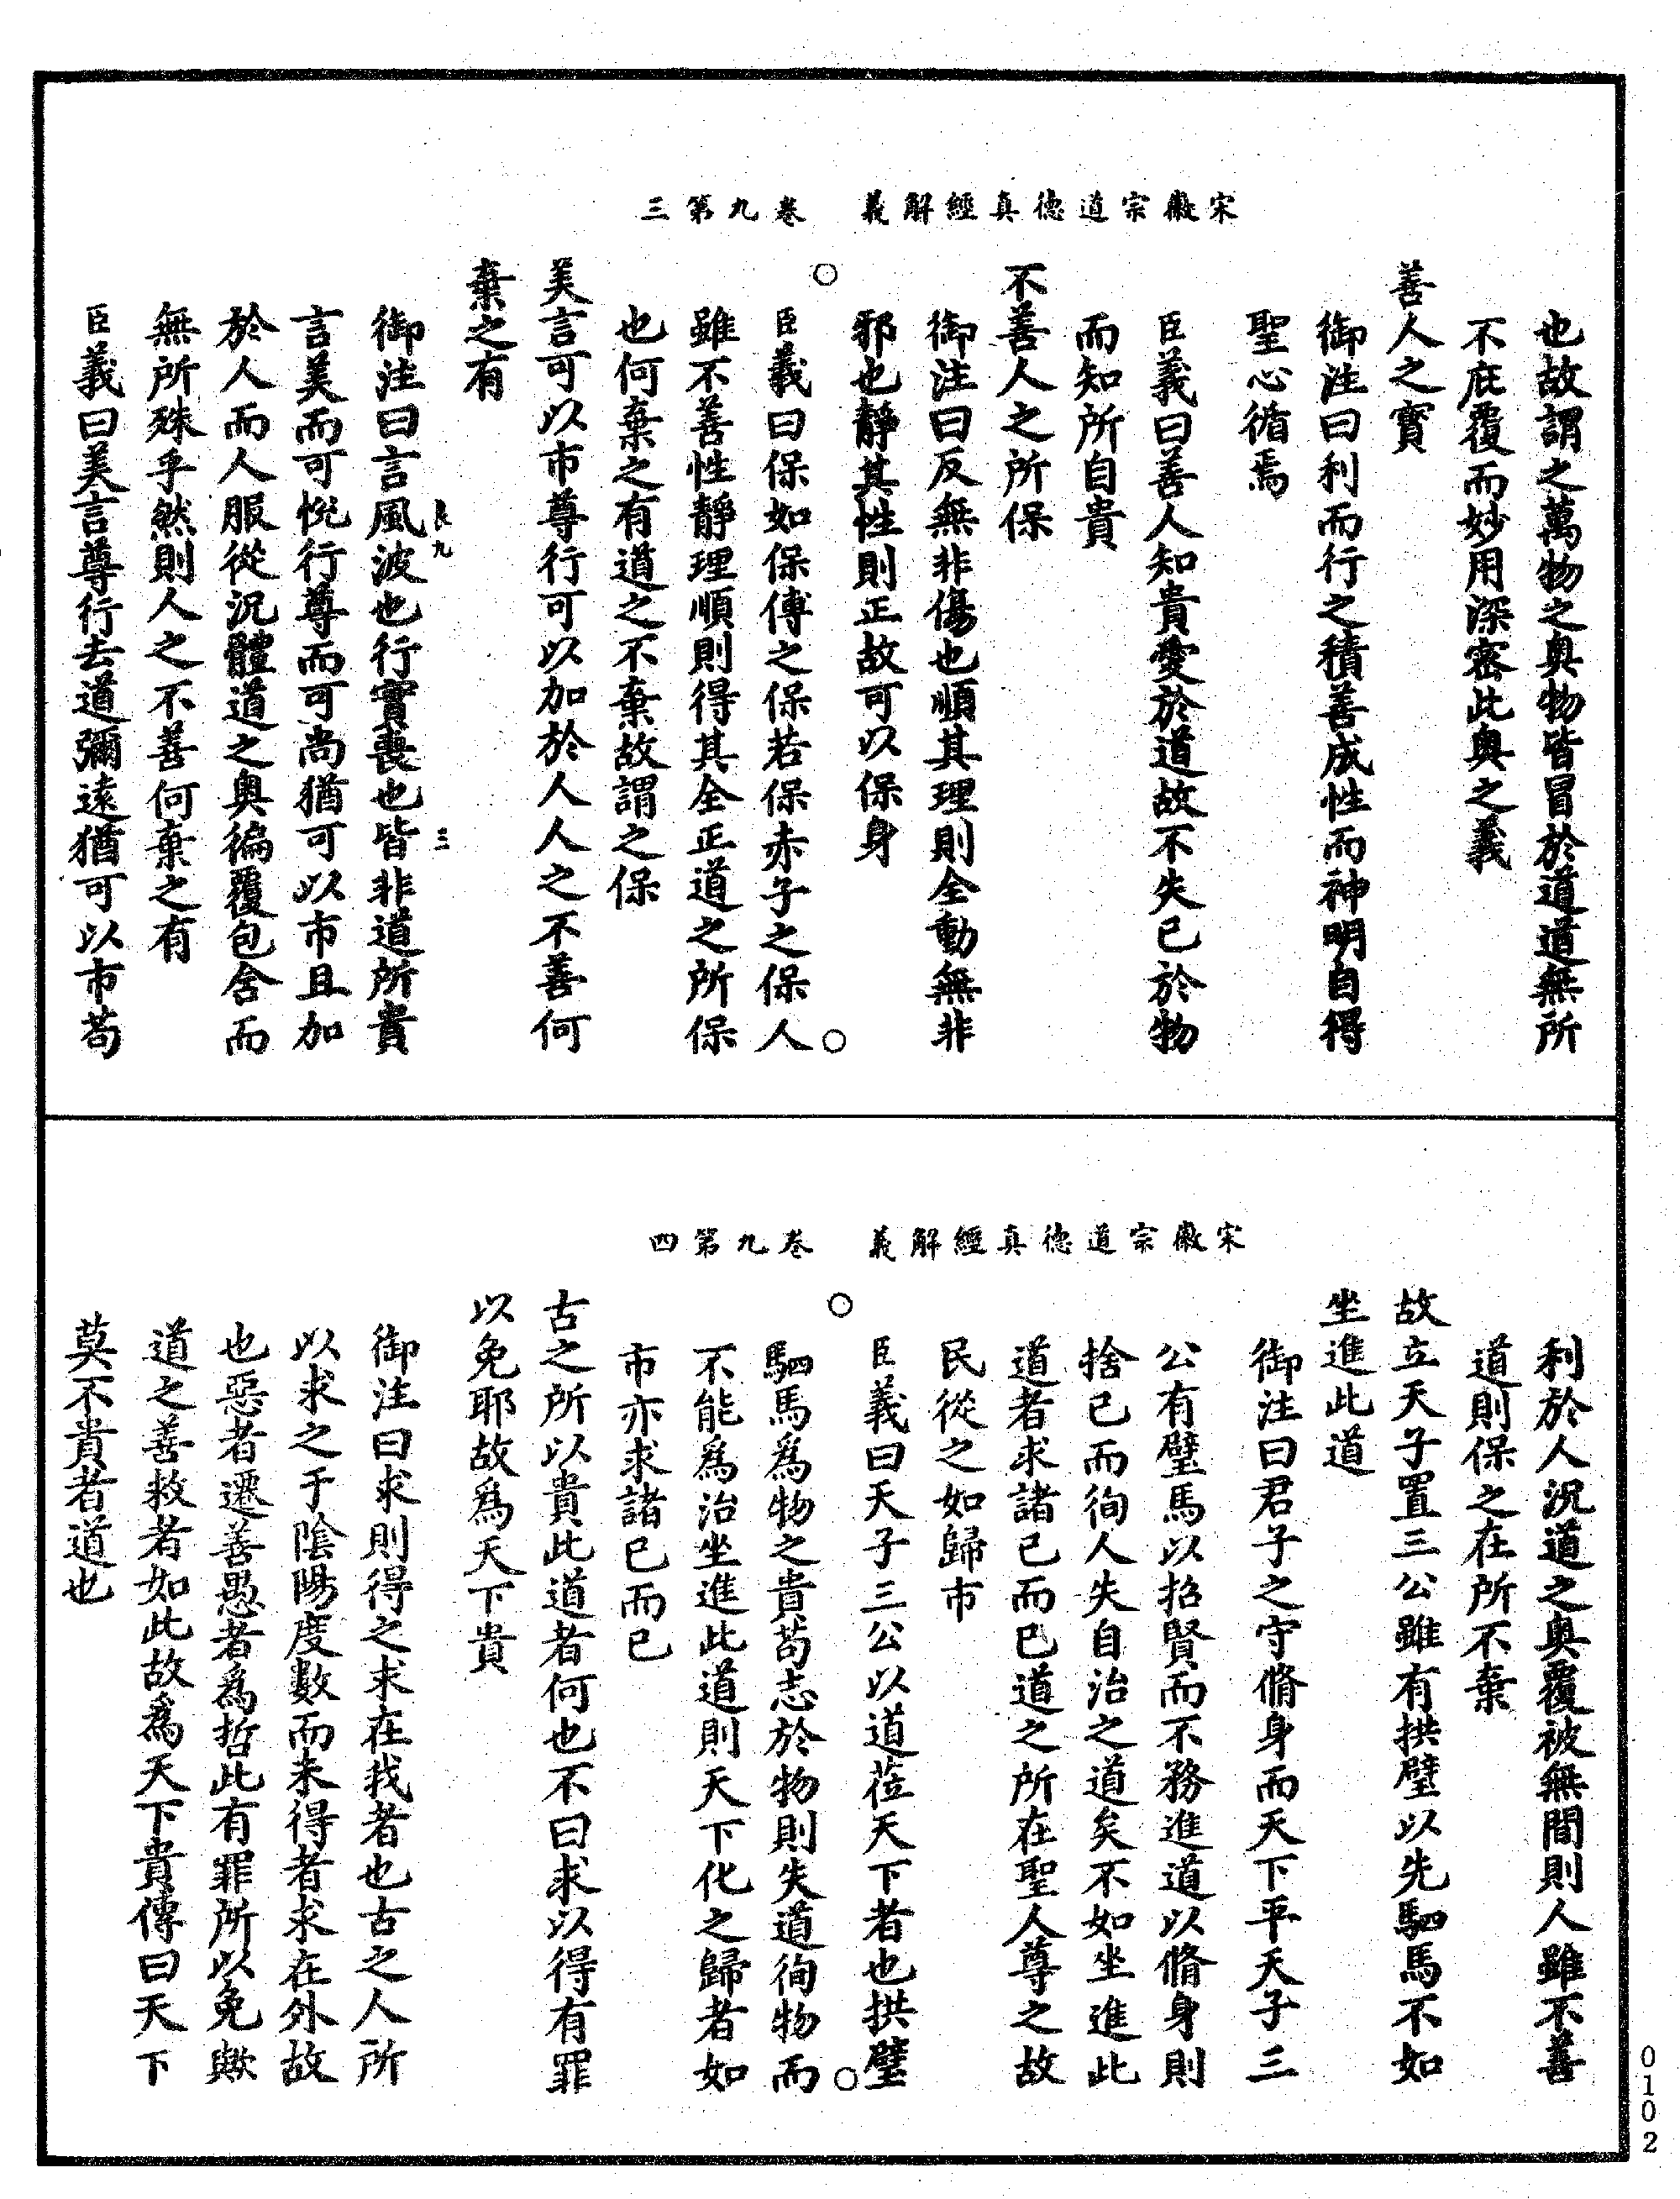 宋徽宗道德真經解義　卷九第三
也故謂之萬物之奧物皆冒於道道無所
不庇覆而妙用深密此奧之義
善人之寳
御注曰利而行之積善成性而神明自得
聖心循焉
臣義曰善人知貴愛於道故不失已於物
而知所自貴
不善人之所保
御注曰反無非傷也順其理則全動無非
邪也靜其性則正故可以保身
臣義曰保如保傅之保若保赤子之保人
雖不善性靜理順則得其全正道之所保
也何棄之有道之不棄故謂之保
美言可以市尊行可以加於人人之不善何
棄之有
御注曰言風波也行實喪也皆非道所貴
良九
三
言美而可悅行尊而可尚猶可以市且加
於人而人服從況體道之奧徧覆包含而
無所殊乎然則人之不善何棄之有
臣義曰美言尊行去道彌遠猶可以市苟
宋徽宗道德真經解義　卷九第四
利於人況道之奧覆被無間則人雖不善
道則保之在所不棄
故立天子置三公雖有拱璧以先駟馬不如
坐進此道
御注曰君子之守脩身而天下平天子三
公有璧馬以招賢而不務進道以脩身則
捨己而徇人失自治之道矣不如坐進此
道者求諸己而已道之所在聖人尊之故
民從之如歸市
臣義曰天子三公以道莅天下者也拱璧
駟馬爲物之貴苟志於物則失道徇物而
不能爲治坐進此道則天下化之歸者如
市亦求諸已而已
古之所以貴此道者何也不曰求以得有罪
以免耶故爲天下貴
御注曰求則得之求在我者也古之人所
以求之于陰陽度數而未得者求在外故
也惡者遷善愚者爲哲此有罪所以免歟
道之善救者如此故爲天下貴傳曰天下
莫不貴者道也
0102